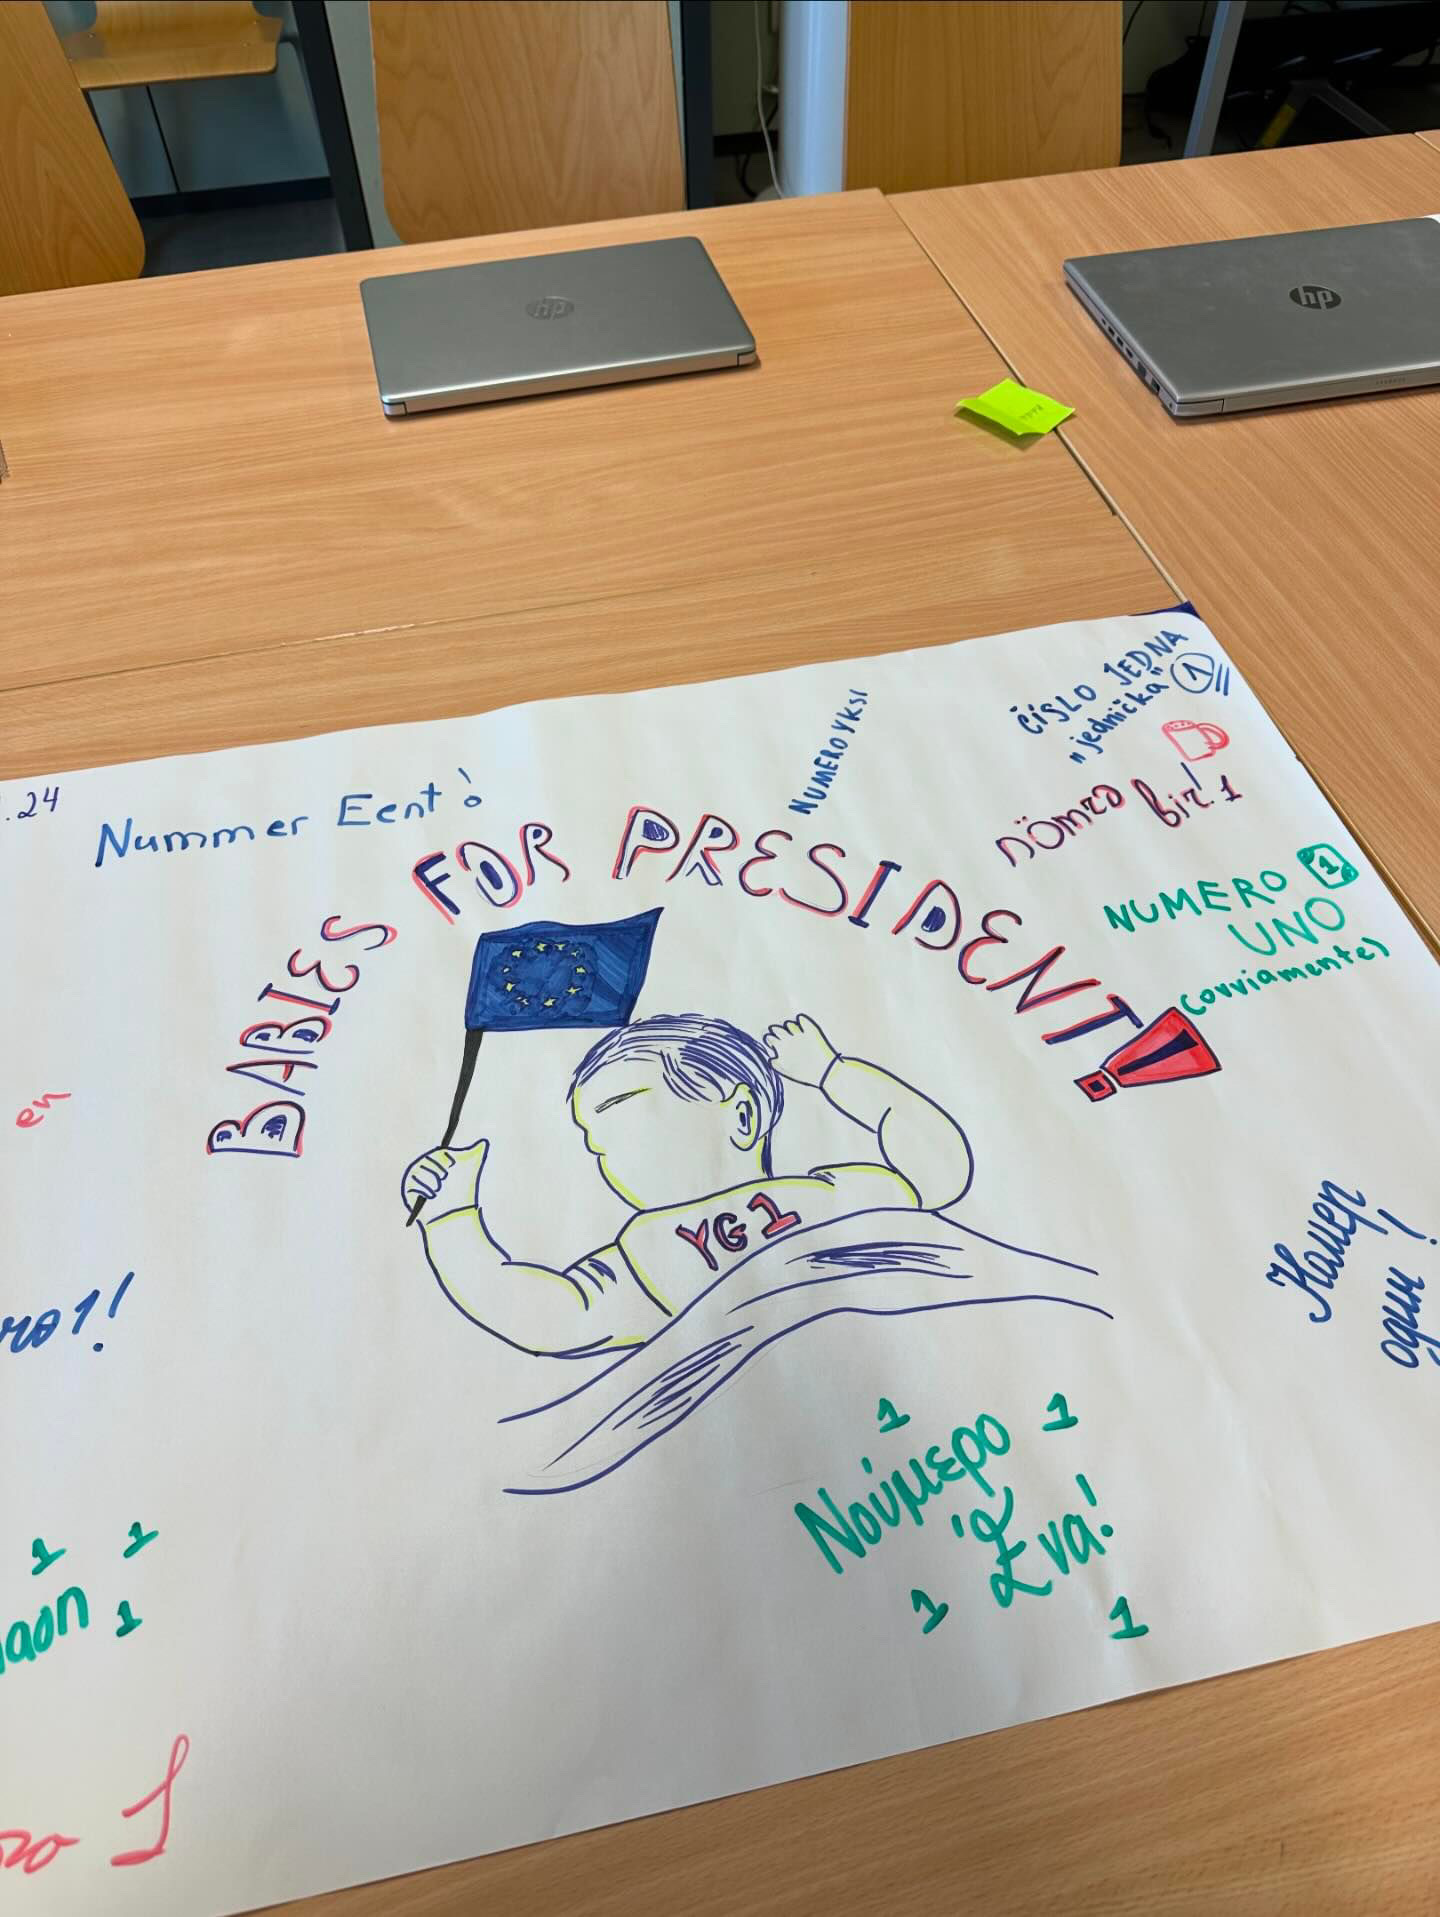 hp
hp
.24
Nummer Eent!
NUMERO YKSI
ČÍSLO JEDNA
"jednička" 1
nömrə bir! 1
BABIES FOR PRESIDENT!
NUMERO 1
UNO
(ovviamente)
en
YG1
Номер
один!
ro 1!
1 1
1
1 1
Νούμερο
Ένα!
1 1
ro 1